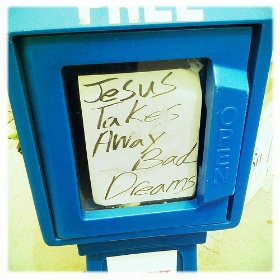 FREE
Jesus
Takes
Away
Bad
Dreams
OPEN